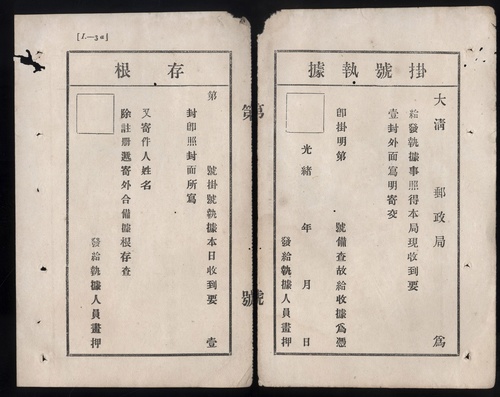 [J.—3a]
掛號執據
大淸郵政局爲
給發執據事照得本局現收到要
壹封外面寫明寄交
卽掛明第號備查故給收據爲憑
光緒年月日
發給執據人員畫押
第號
存根
第號掛號執據本日收到要壹
封卽照封面所寫
又寄件人姓名
除註册遞寄外合備據根存查
發給執據人員畫押